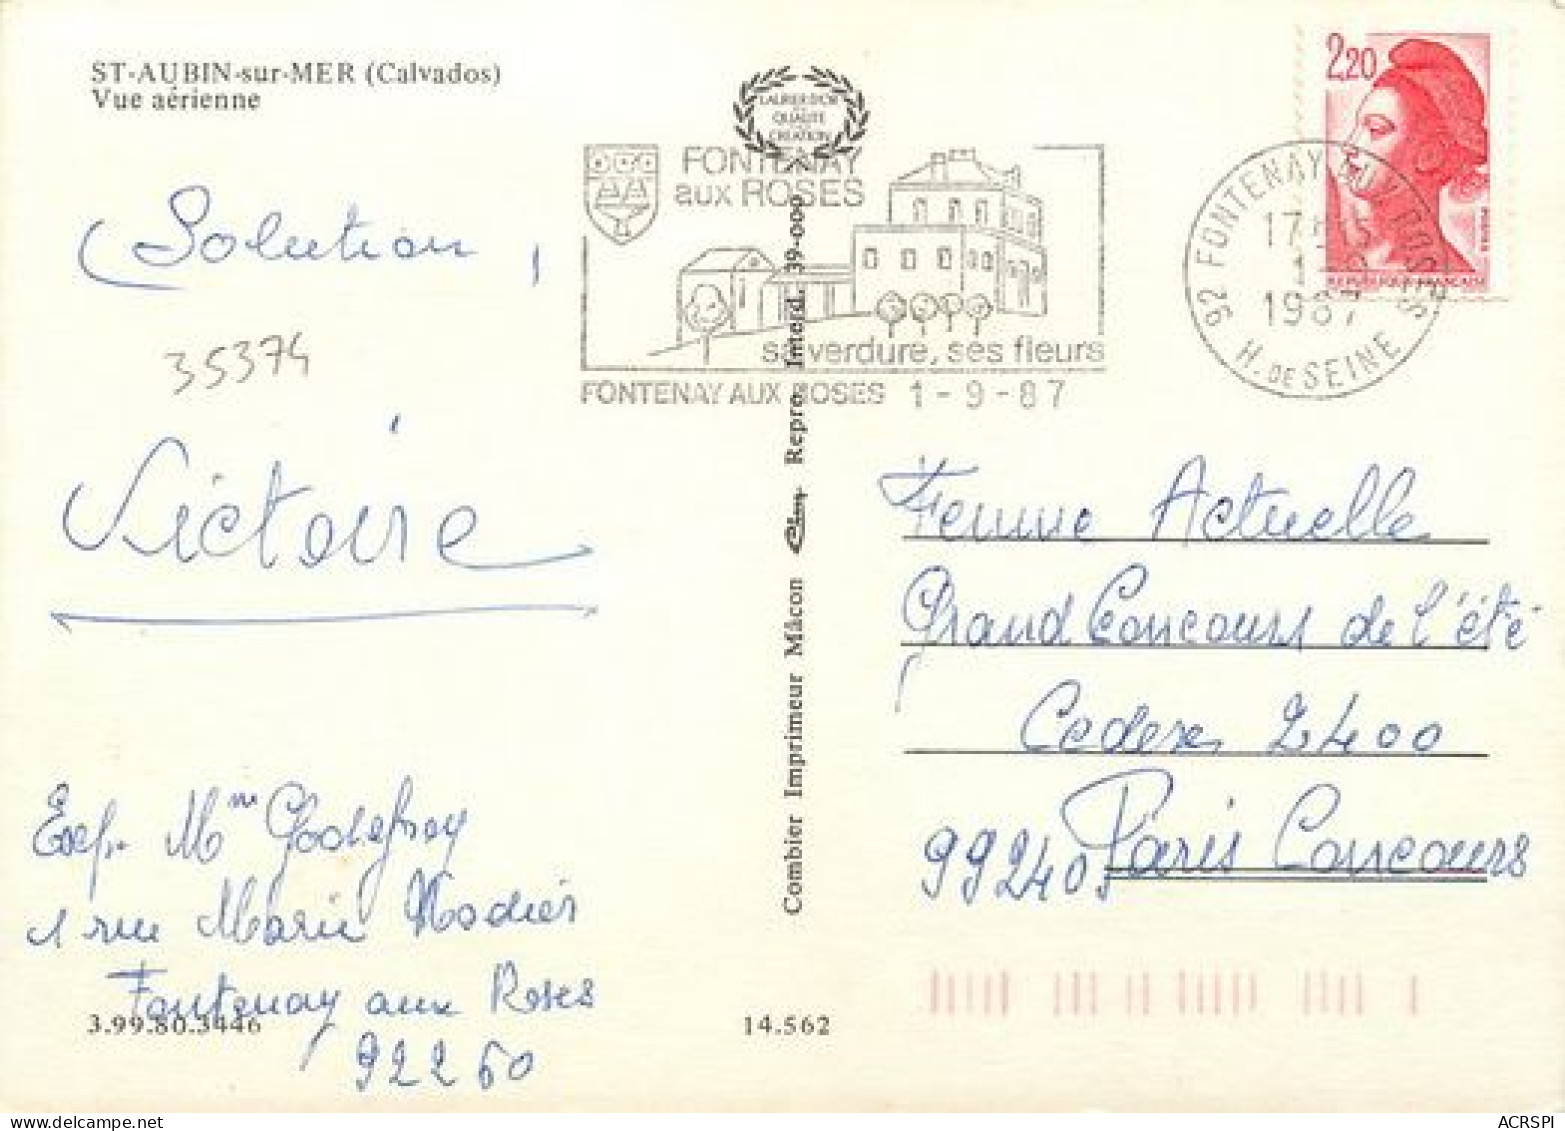 ST-AUBIN-sur-MER (Calvados)
Vue aérienne
LAURIER D'OR
QUALITE
CREATION
FONTENAY
aux ROSES
sa verdure, ses fleurs
FONTENAY AUX ROSES 1-9-87
2,20
REPUBLIQUE FRANÇAISE
92 FONTENAY AUX ROSES
1987
H. DE SEINE
Solution,
35374
Victoire
Exp. Mme Godefroy
1 rue Marie
Fontenay aux Roses
92260
3.99.80.3446
14.562
Combier Imprimeur Mâcon Repro. Interd. 39-000
Femme Actuelle
Grand Concours de l'été
Cedex 2400
99240 Paris Concours
ACRSPI